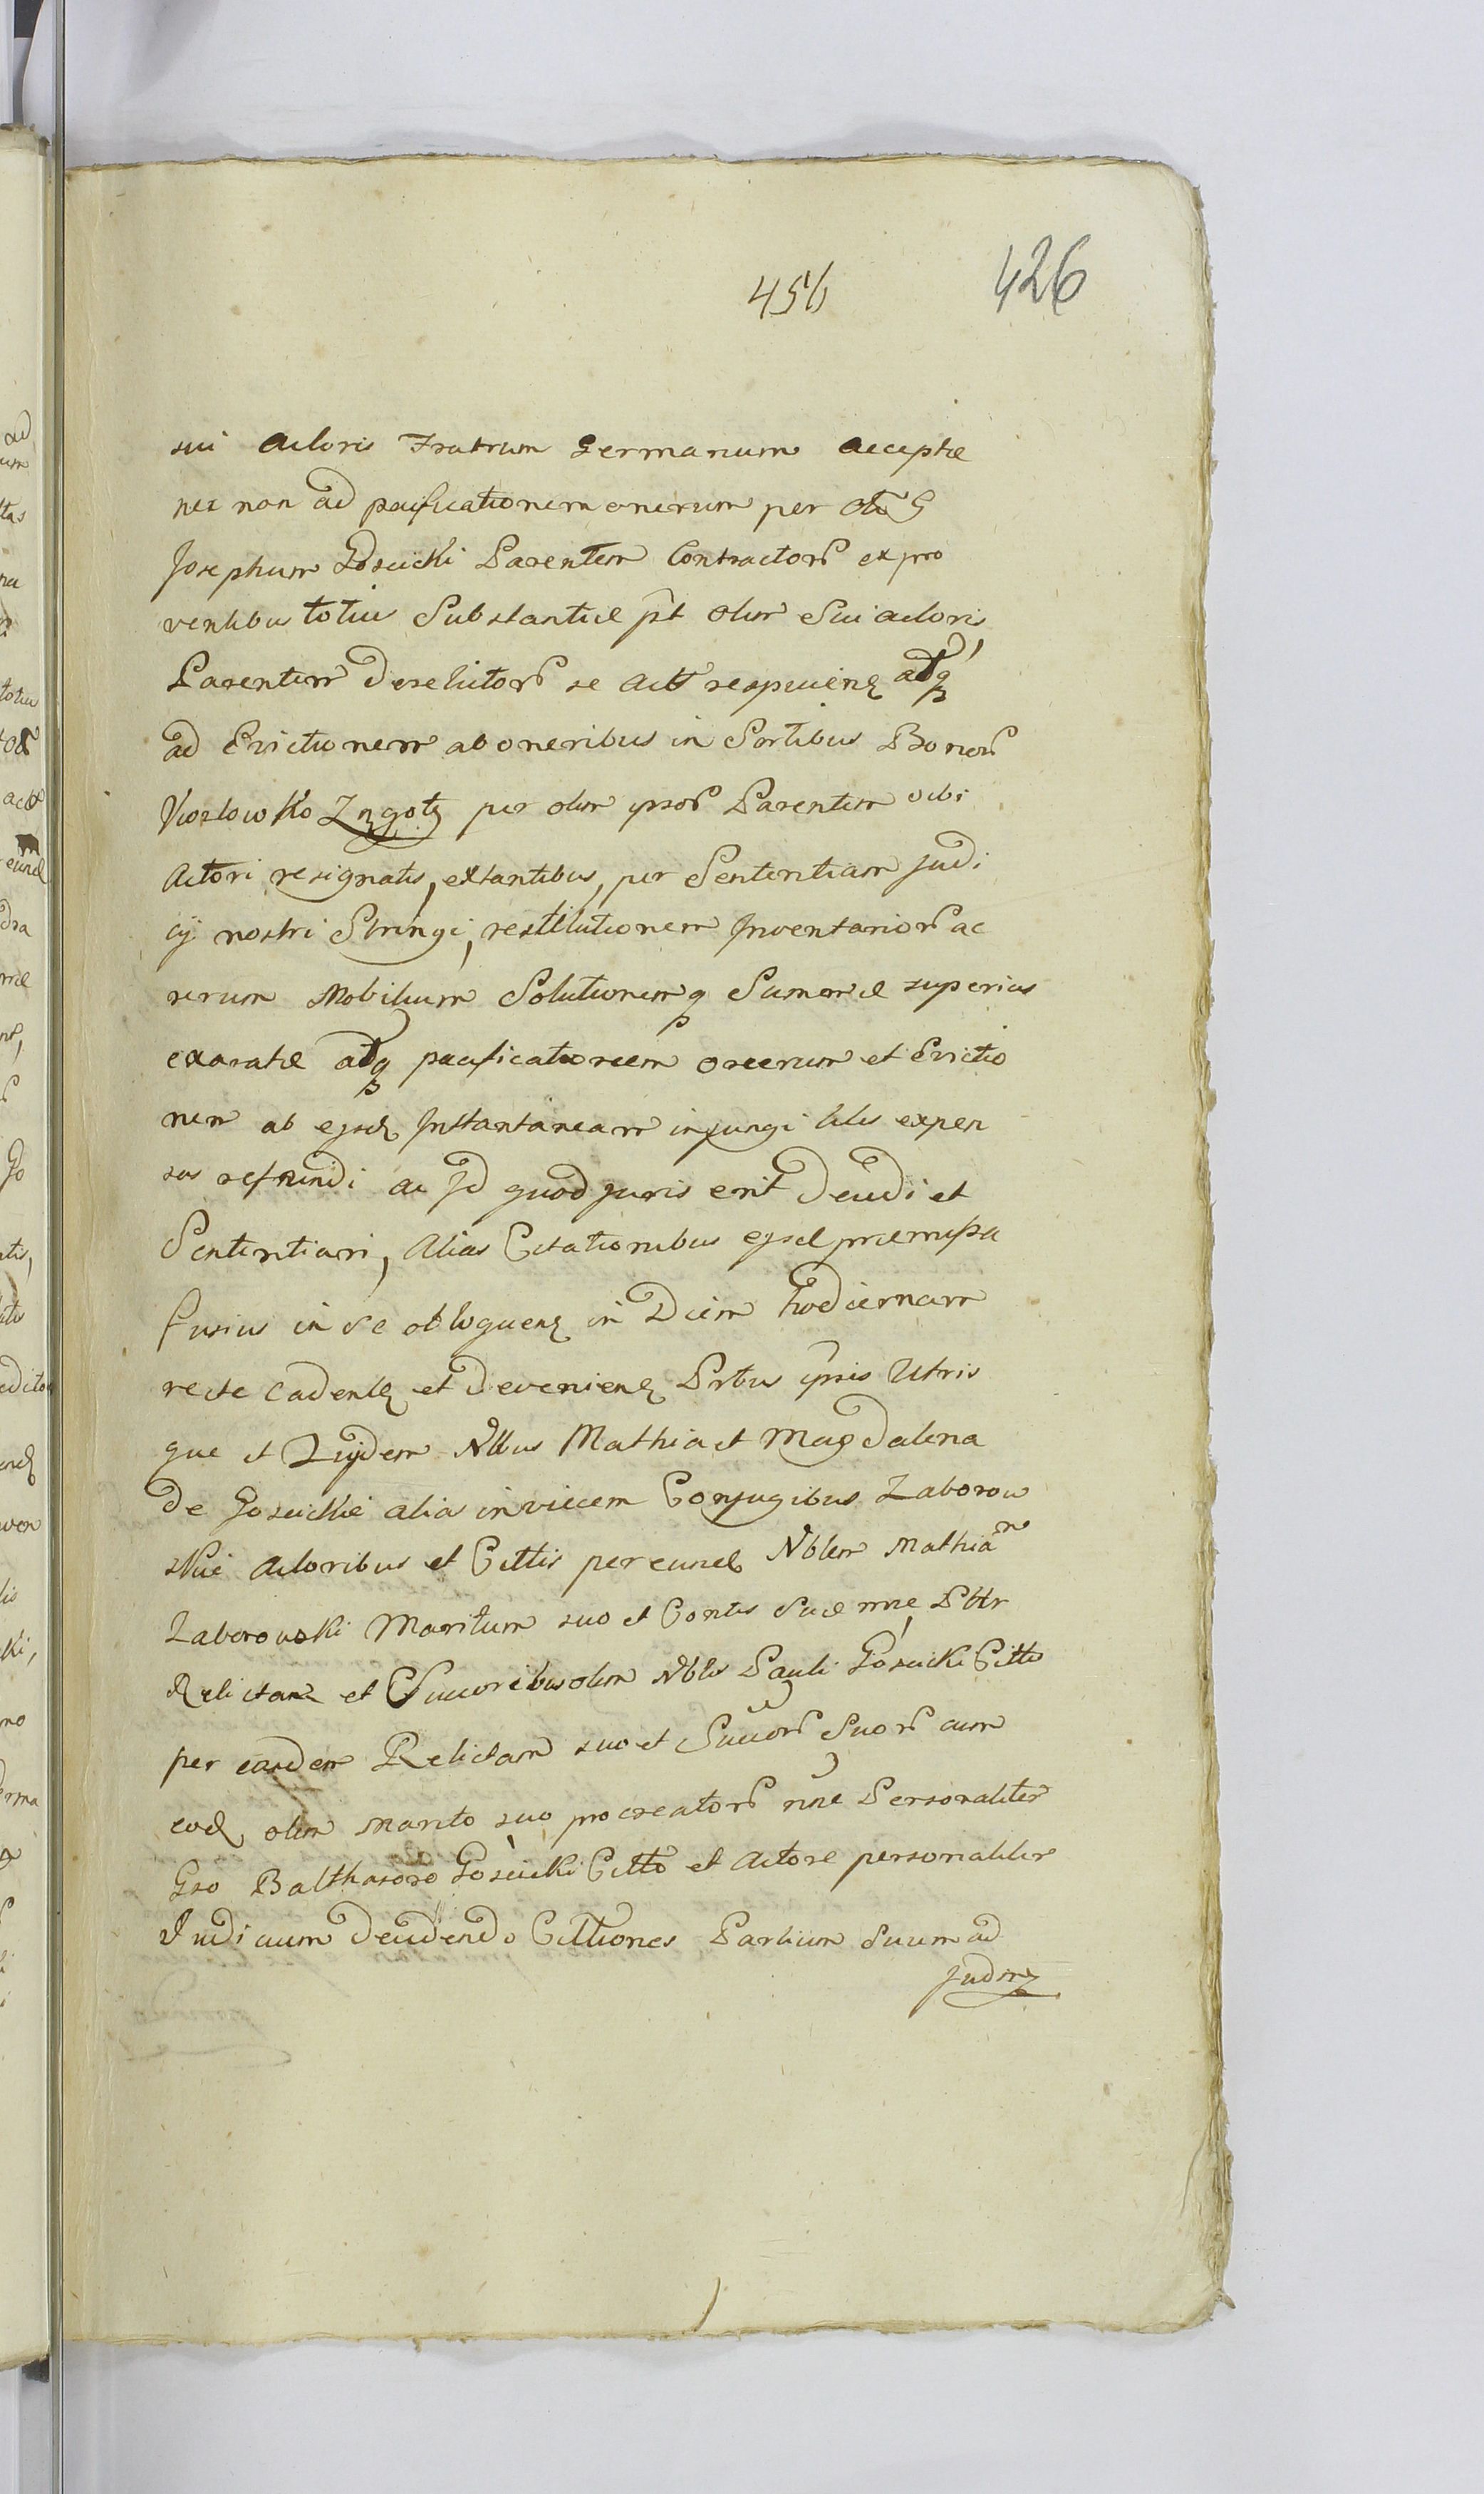 456
426
sui Actoris Fratrum Germanum acceptæ
nec non ad pacificationem onerum per olim G
Josephum Gościcki Parentem Contractorũ ex pro
ventibus totius Substantiæ pt olim Sui actoris
Parentem derelictorũ se Act respicienz adq
ad Evictionem ab oneribus in Sortibus Bonorũ
Kozłowko Zzgotz per olim ipsorũ Parentem sibi
Actori resignatis, extantibus, per Sententiam Judi
cÿ nostri Stringi, restitutionem Inventariorũ ac
rerum Mobilium Solutionemq Summæ superius
exaratæ adq pacificationem onerum et Evictio
nem ab ejsd Instantaneam injungi litis expen
sas refundi ac Jd quod juris erit Decidi et
Sententiari, Alias Citationibus ejsd præmissa
fusius in se obloquenz in Diem hodiernam
recte cadentz et Devenienz Prtbus ipsis Utris
que et Zujdem Nbbus Mathia et Magdalena
de Gościckie alia invicem Conjugibus Zaborow
skie Actoribus et Cittis per eund Nblem Mathiam
Zaborowski Maritum suo et Contis Suæ nne Pttr
Relictam et Succoribus olim Nblis Pauli Gościcki Cittis
per eandem Relictam suo et Succorũ Suorũ cum
eod olim Marito suo procreatorũ nne Personaliter
Gso Balthasaro Gościcki Citto et Actore personaliter
Judicium Decidendo Cittiones Partium Suum ad
Judm